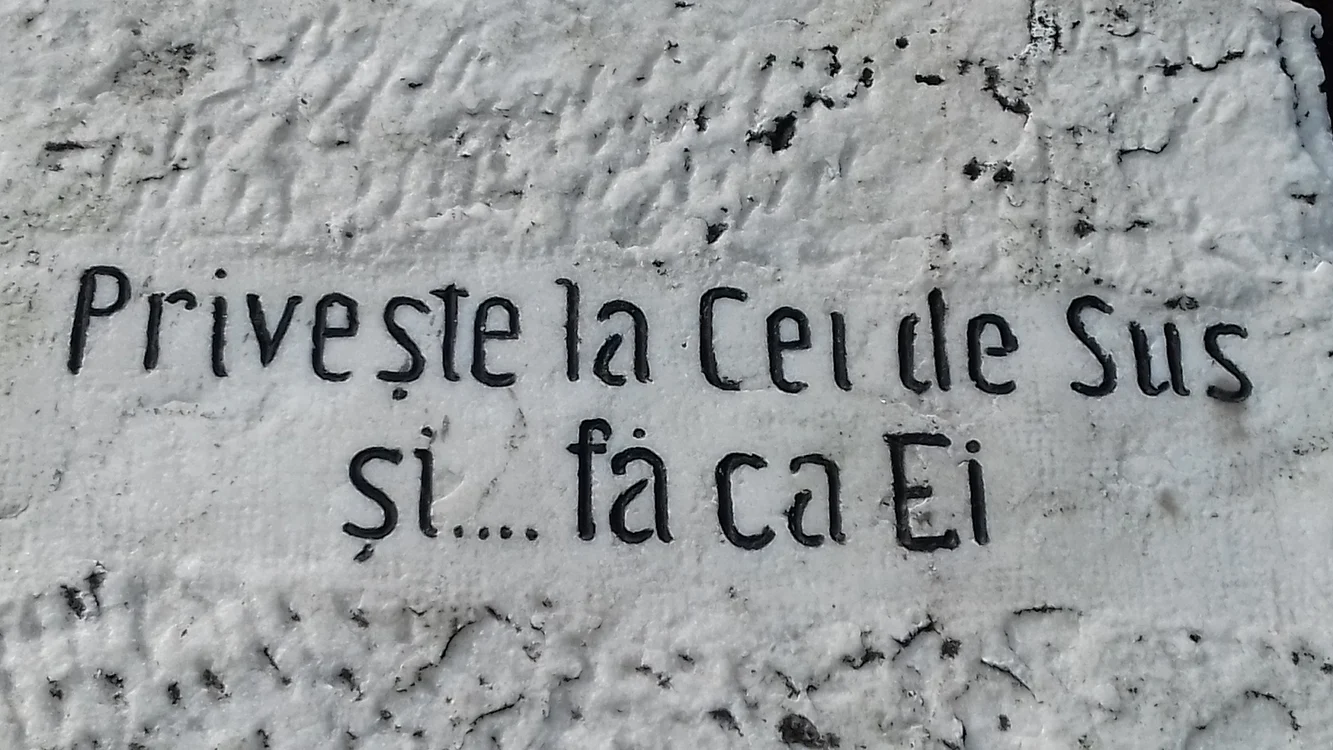 Privește la Cei de Sus
și.... fă ca Ei